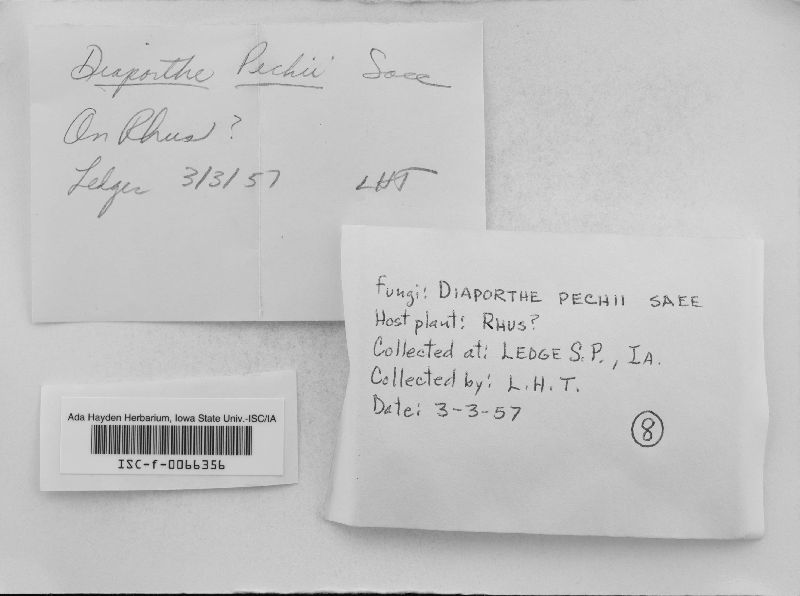 Diaporthe Pechii Sacc
On Rhus ?
Ledges 3/3/57 LHT
Fungi: DIAPORTHE PECHII SAEE
Host plant: RHUS?
Collected at: LEDGE S.P., IA.
Collected by: L.H.T.
Date: 3-3-57
8
Ada Hayden Herbarium, Iowa State Univ.-ISC/IA
ISC-f-0066356